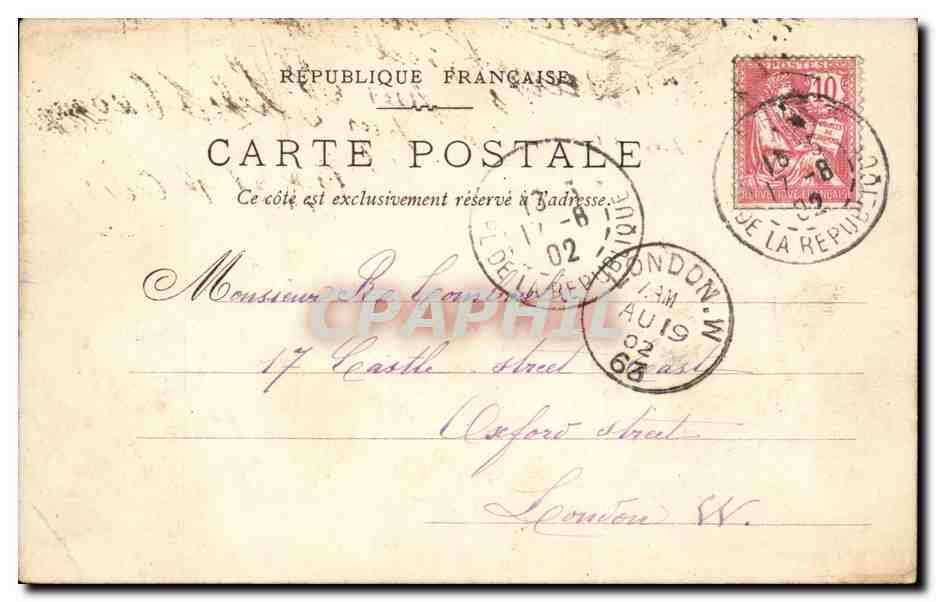 RÉPUBLIQUE FRANÇAISE
CARTE POSTALE
Ce côté est exclusivement réservé à l'adresse.
POSTES
10
RÉPUBLIQUE FRANÇAISE
DE LA REPUBLIQUE
13
17 -8
02
PL. DE LA REPUBLIQUE
LONDON.W
7 AM
AU 19
02
63
Monsieur R.
17 Castle street East
Oxford street
London W.
CPAPHIL